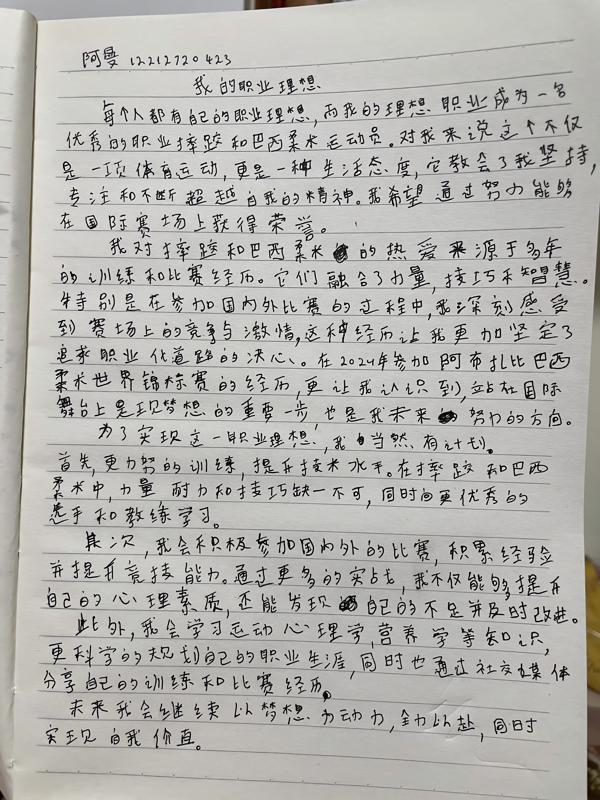 阿曼 12212720423
我的职业理想
每个人都有自己的职业理想,而我的理想职业成为一名
优秀的职业摔跤和巴西柔术运动员。对我来说这个不仅
是一项体育运动,更是一种生活态度,它教会了我坚持,
专注和不断超越自我的精神。我希望通过努力能够
在国际赛场上获得荣誉。
我对摔跤和巴西柔术的热爱来源于多年
的训练和比赛经历。它们融合了力量,技巧和智慧。
特别是在参加国内外比赛的过程中,我深刻感受
到赛场上的竞争与激情,这种经历让我更加坚定了
追求职业化道路的决心。在2024年参加阿布扎比巴西
柔术世界锦标赛的经历,更让我认识到,站在国际
舞台上是现梦想的重要一步,也是我未来努力的方向。
为了实现这一职业理想,我当然有计划。
首先,更力努的训练,提升技术水平。在摔跤和巴西
柔术中,力量耐力和技巧缺一不可,同时向更优秀的
选手和教练学习。
其次,我会积极参加国内外的比赛,积累经验
并提升竞技能力。通过更多的实战,我不仅能够提升
自己的心理素质,还能发现自己的不足并及时改进。
此外,我会学习运动心理学,营养学等知识,
更科学的规划自己的职业生涯,同时也通过社交媒体
分享自己的训练和比赛经历。
未来我会继续以梦想为动力,全力以赴,同时
实现自我价值。